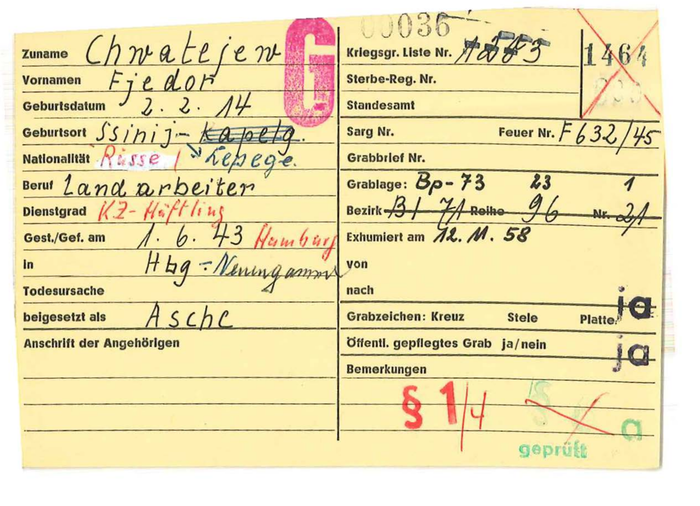 Zuname Chwatejew
Vornamen Fjedor
Geburtsdatum 2. 2. 14
Geburtsort Ssinij- Kapelg.
Nationalität Russe / Lepege.
Beruf Landarbeiter
Dienstgrad KZ-Häftling
Gest./Gef. am 1. 6. 43 Hamburg
in Hbg - Neuengamme
Todesursache
beigesetzt als Asche
Anschrift der Angehörigen
G
00036
Kriegsgr. Liste Nr.
1464
Sterbe-Reg. Nr.
Standesamt
Sarg Nr. Feuer Nr. F 632/45
Grabbrief Nr.
Grablage: Bp-73 23 1
Bezirk BI 71 Reihe 96 Nr. 21
Exhumiert am 12. 11. 58
von
nach
Grabzeichen: Kreuz Stele Platte: ja
Öffentl. gepflegtes Grab ja/nein ja
Bemerkungen
§ 1/4 § a
geprüft